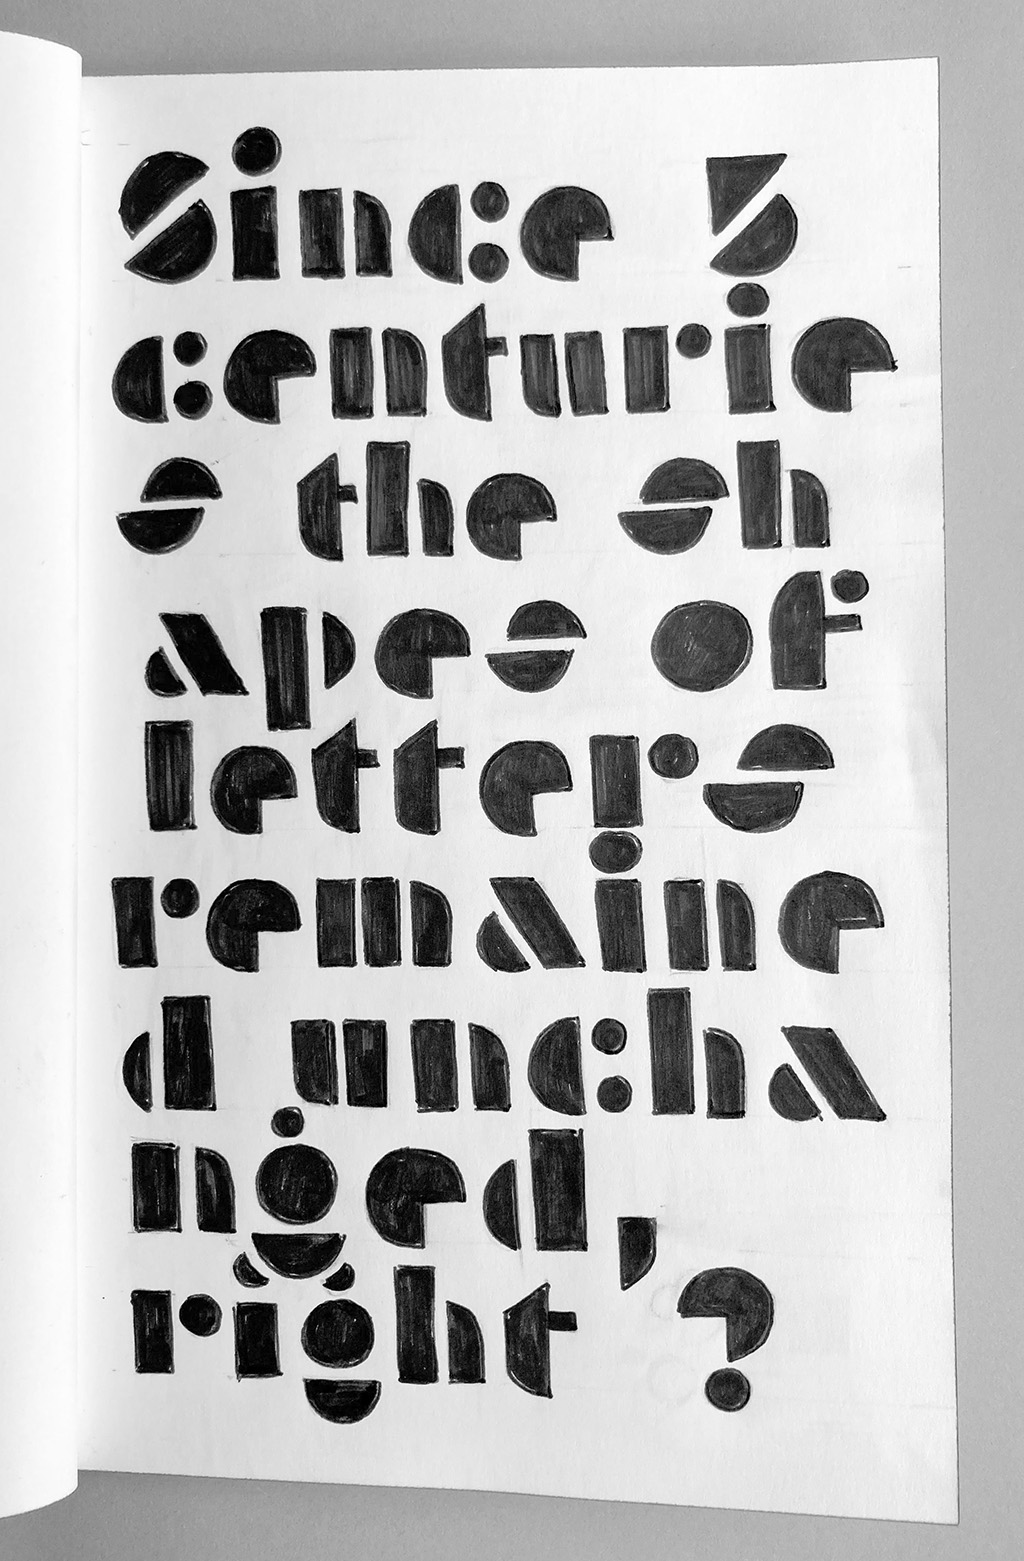 Since 5
centurie
s the sh
apes of
letters
remaine
d uncha
nged,
right ?